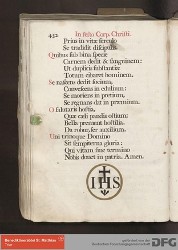 432 In festo Corp. Christi.
Prius in vitæ ferculo
Se tradidit discipulis.
Quibus sub bina specie
Carnem dedit & sanguinem:
Ut duplicis substantiæ
Totum cibaret hominem.
Se nascens dedit socium,
Convescens in edulium:
Se moriens in pretium,
Se regnans dat in præmium.
O salutaris hostia,
Quæ cæli pandis ostium:
Bella premunt hostilia,
Da robur, fer auxilium.
Uni trinoque Domino
Sit sempiterna gloria:
Qui vitam sine termino
Nobis donet in patria. Amen.
IHS
DFG